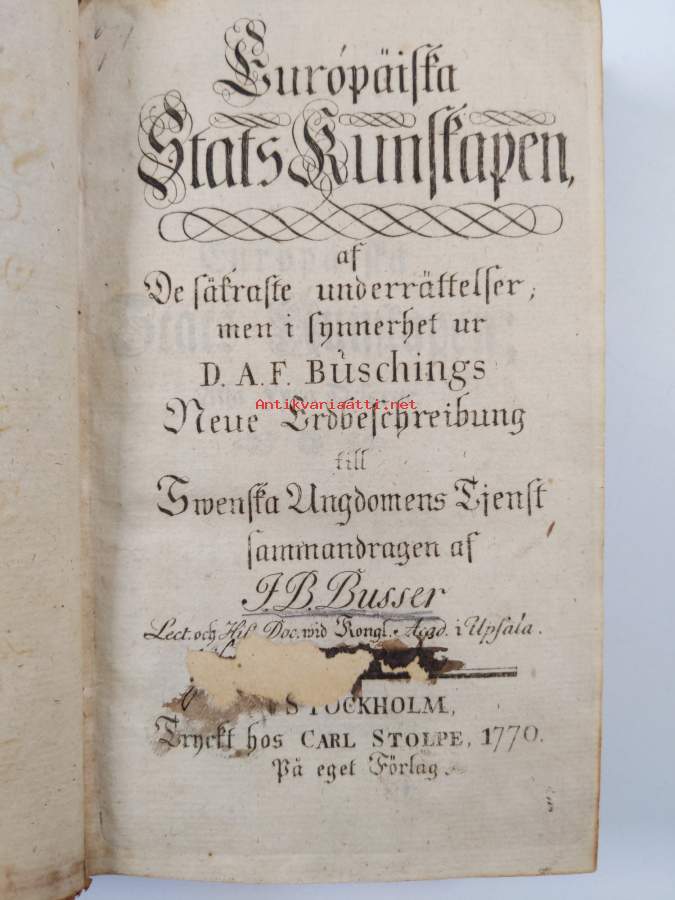 Európäiska
Stats Kunskapen,
af
De säkraste underrättelser;
men i synnerhet ur
D. A. F. Büschings
Antikvariaatti.net
Neue Erdbeschreibung
till
Swenska Ungdomens Tjenst
sammandragen af
J. B. Busser
Lect. och His. Doc. wid Kongl. Acad. i Upsala.
STOCKHOLM,
Tryckt hos CARL STOLPE, 1770.
På eget Förlag.